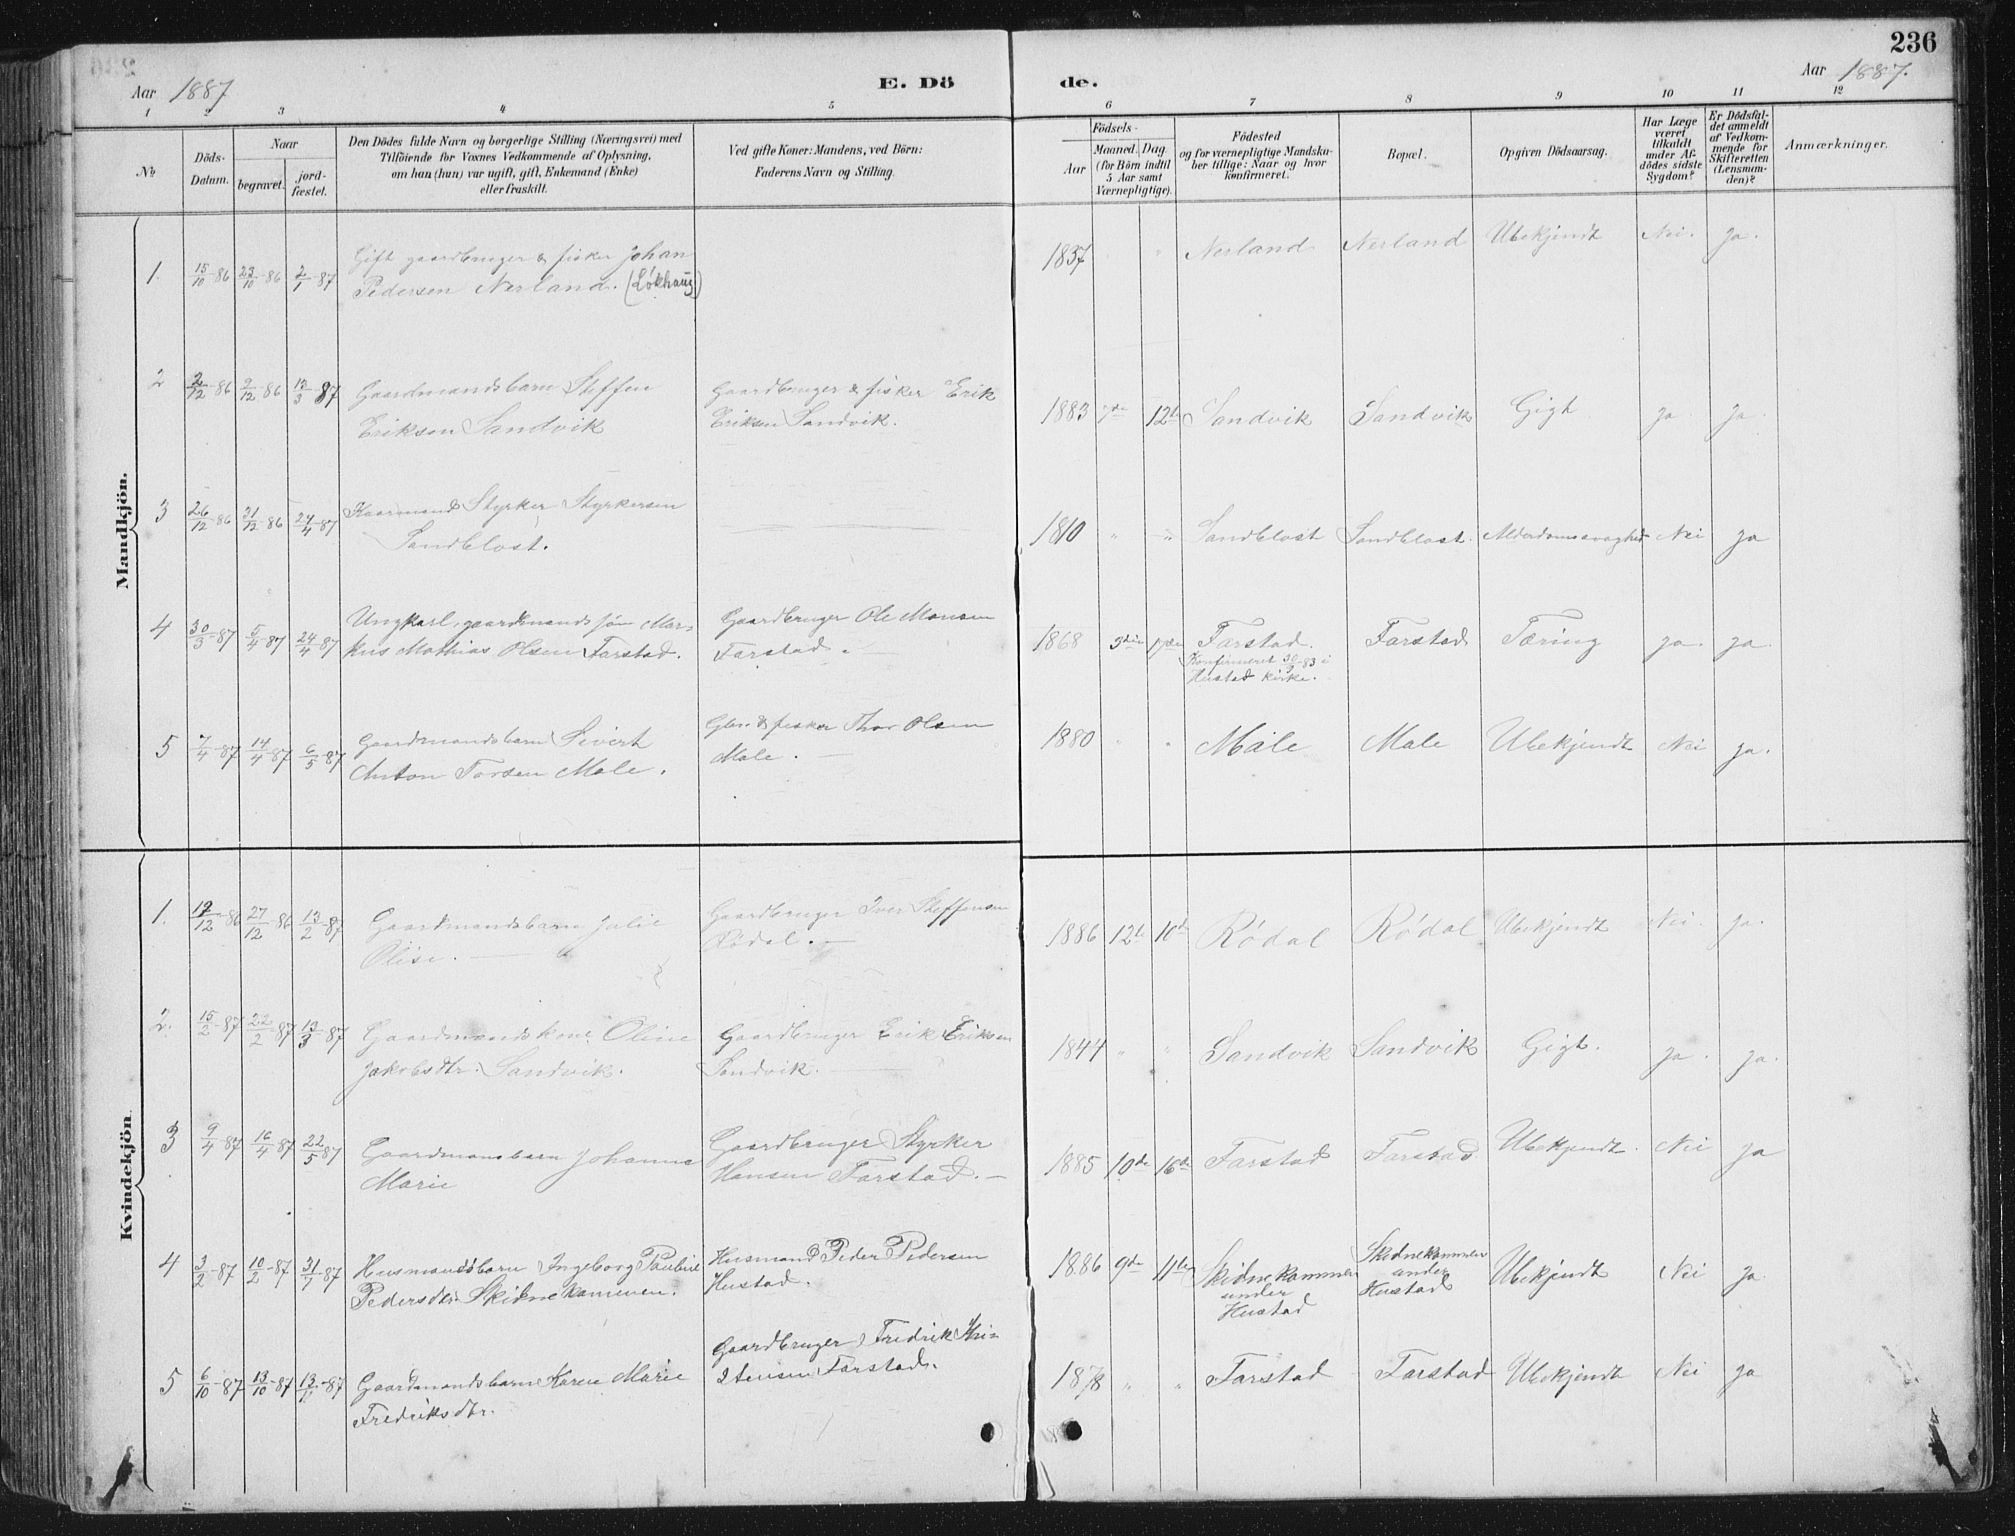 236
Aar 1887
E. Dö
de.
Aar 1887.
1 2 3 4 5 6 7 8 9 10 11 12
No
Döds-Datum.
Naar
begravet.
jordfæstet.
Den Dödes fulde Navn og borgerlige Stilling (Næringsvei) med
Tilföiende for Voxnes Vedkommende af Oplysning,
om han (hun) var ugift, gift, Enkemand (Enke)
eller fraskilt.
Ved gifte Koner: Mandens, ved Börn:
Faderens Navn og Stilling.
Födsels-
Aar
Maaned. Dag
(for Börn indtil
5 Aar samt
Værnepligtige).
Födested
og for værnepligtige Mandskaber tillige: Naar og hvor
konfirmeret.
Bopæl.
Opgiven Dödsaarsag.
Har Læge
været
tilkaldt
under Afdödes sidste
Sygdom?
Er Dödsfaldet anmeldt
af Vedkommende for
Skifteretten
(Lensmanden)?
Anmærkninger.
Mandkjön.
1. 15/10-86 23/10-86 2/1-87 Gift gaardbruger & fisker Johan
Pedersen Nerland. (Lökhaug)
1837 " " Nerland Nerland Ubekjendt Nei. Ja.
2 2/12-86 9/12-86 13/3-87 Gaardmandsbarn Steffen
Eriksen Sandvik
Gaardbruger & fisker Erik
Eriksen Sandvik.
1883 12te Sandvik Sandvik Gigt ja ja
3 26/12-86 31/12-86 24/4-87 Kaarmand Styrker Styrkersen
Sandblost.
1810 " " Sandblost Sandblost. Alderdomssvaghed Nei ja
4 30/3-87 5/4-87 24/4-87 Ungkarl, gaardmandssön Markus Mathias Olsen Farstad.
Gaardbruger Ole Monsen
Farstad.
1868 3die Farstad.
Konfirmeret 30/9-83 i
Hustad kirke.
Farstad Tæring ja. ja.
5 7/4-87 14/4-87 6/5-87 Gaardmandsbarn Sivert
Anton Torsen Male.
Gbr. & fisker Thor Olsen
Male.
1880 " " Male Male Ubekjendt Nei ja.
Kvindekjön.
1. 12/12-86 27/12-86 13/2-87 Gaardmandsbarn Julie
Olise.
Gaardbruger Iver Steffensen
Rödal.
1886 12te 10de Rödal Rödal Ubekjendt Nei. ja.
2. 15/2-87 22/2-87 13/3-87 Gaardmandskone Oline
Jakobsdtr. Sandvik.
Gaardbruger Erik Eriksen
Sandvik.
1844 " " Sandvik Sandvik Gigt. ja. ja.
3 9/4-87 16/4-87 22/5-87 Gaardmansbarn Johanna
Marie
Gaardbruger Styrker
Hansen Farstad.
1885 10de 16de Farstad Farstad. Ubekjendt. Nei ja
4 3/2-87 10/2-87 31/7-87 Husmandsbarn Ingeborg Pauline
Pedersdtr. Skidnekammen.
Husmand Peder Pedersen
Hustad.
1886 9de 11te Skidnekammen
under
Hustad
Skidnekammen
under
Hustad
Ubekjendt Nei ja.
5 6/10-87 13/10-87 13/11-87 Gaardmandsbarn Karen Marie
Fredriksdtr.
Gaardbruger Fredrik Kristensen Farstad.
1878 " " Farstad Farstad Ubekjendt Nei ja